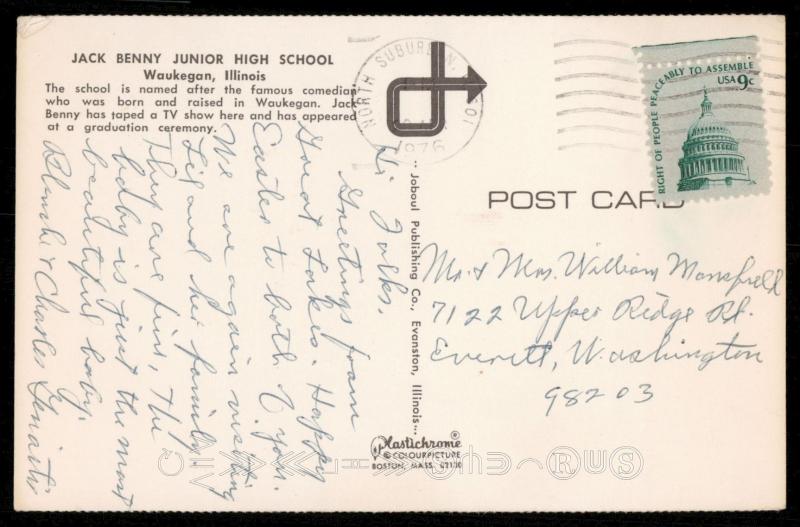 JACK BENNY JUNIOR HIGH SCHOOL
Waukegan, Illinois
The school is named after the famous comedian
who was born and raised in Waukegan. Jack
Benny has taped a TV show here and has appeared
at a graduation ceremony.
Hi Folks,
Greetings from
Great Lakes. Happy
Easter to both of you.
We are again visiting
Liz and her family.
They are fine, the
baby is just the most
beautiful baby.
Blanche & Charles
NORTH SUBURBAN,
1976
RIGHT OF PEOPLE PEACEABLY TO ASSEMBLE
USA 9c
POST CARD
Joboul Publishing Co., Evanston, Illinois
Mr. & Mrs. William Mansfield
7122 Upper Ridge Rd.
Everett, Washington
98203
Plastichrome®
© COLOURPICTURE
BOSTON, MASS. 02130